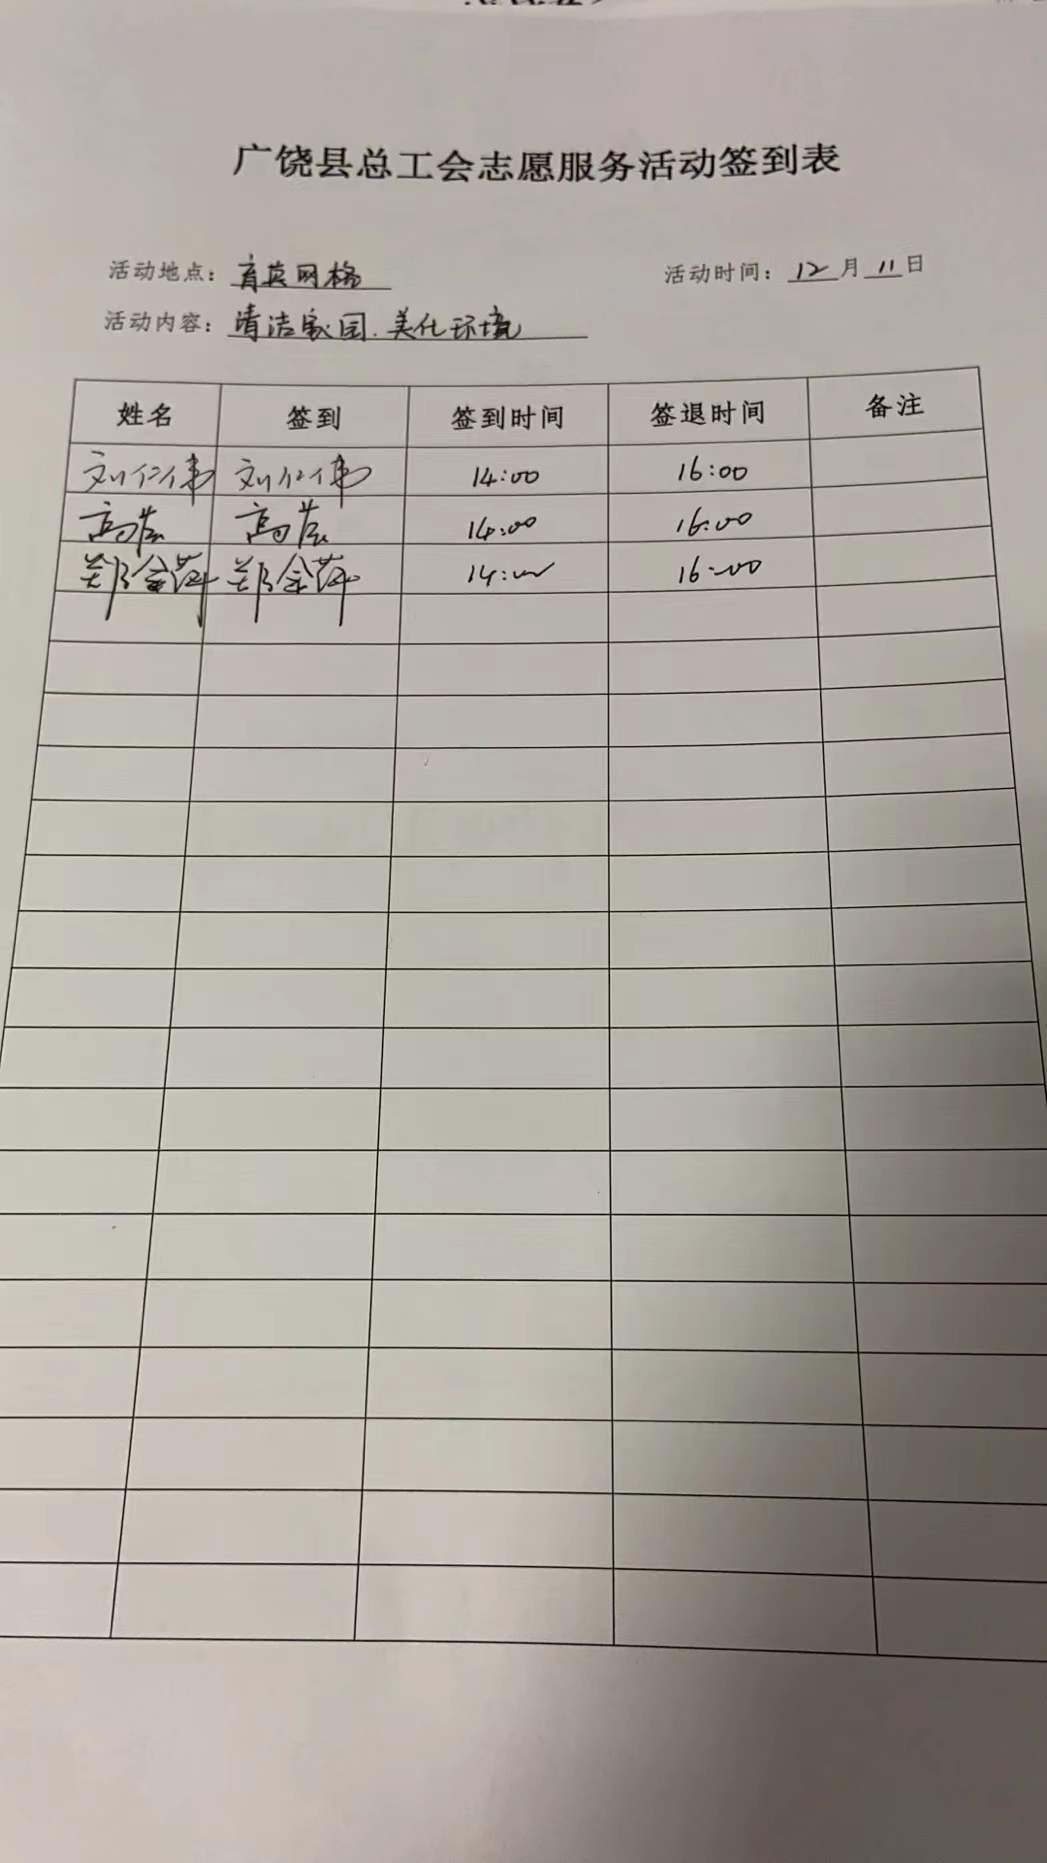 广饶县总工会志愿服务活动签到表
活动地点：育英网格 活动时间：12月11日
活动内容：清洁家园.美化环境
姓名 签到 签到时间 签退时间 备注
刘仁伟 刘仁伟 14:00 16:00
高 高 14:00 16:00
郑金萍 郑金萍 14:00 16:00